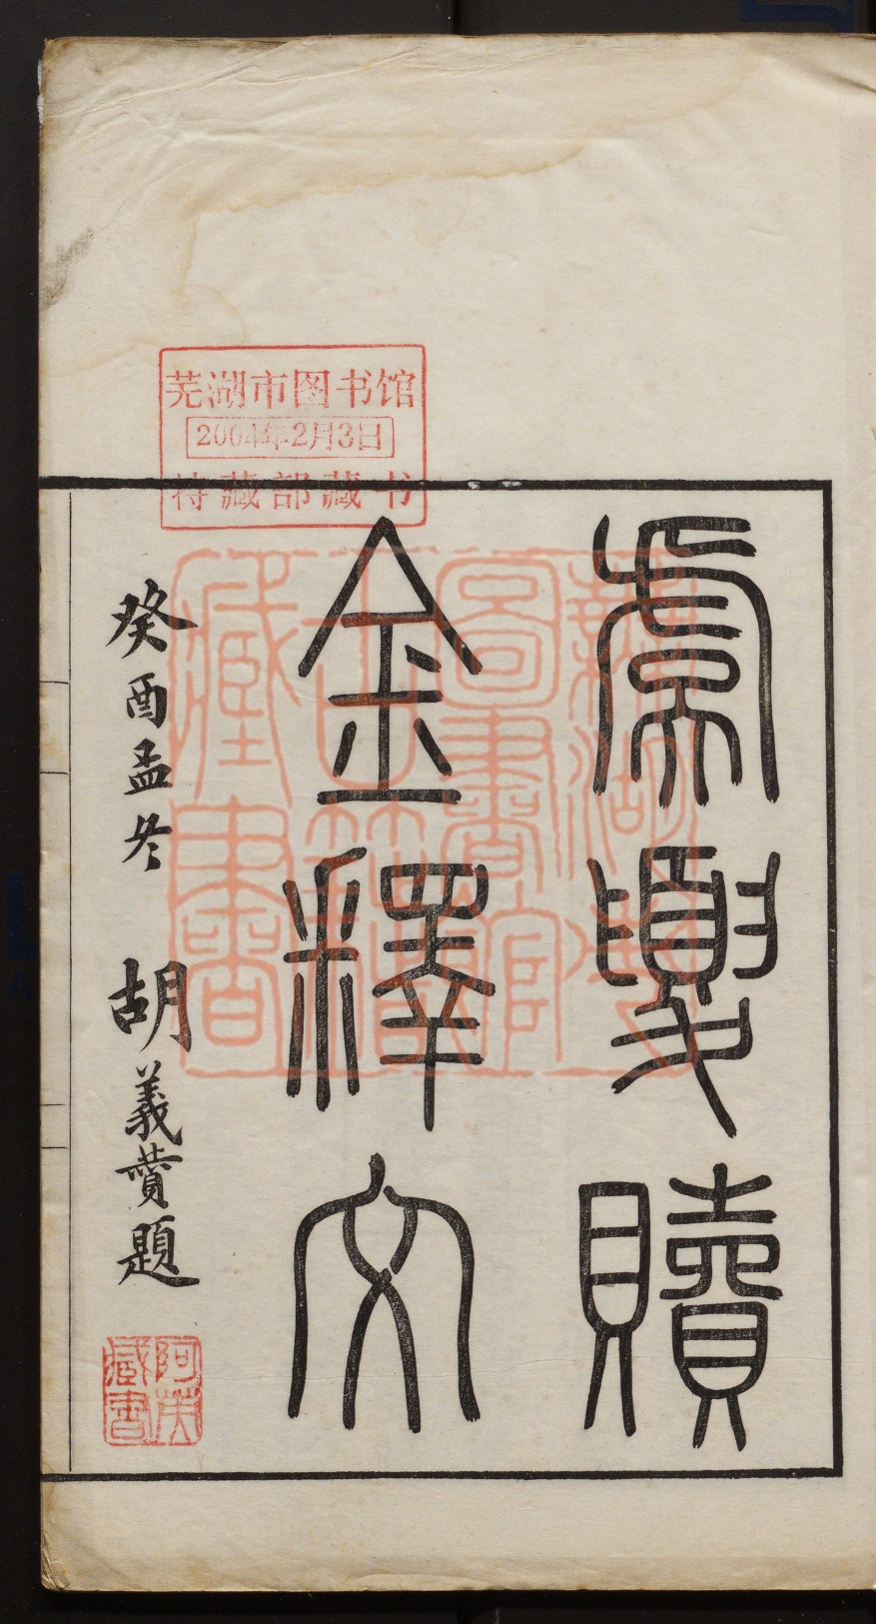 芜湖市图书馆
2004年2月3日
特藏部藏书
虞夏贖
金釋文
癸酉孟冬 胡義贊題
阿英
藏書
蕪湖市
圖書館
古籍
藏書